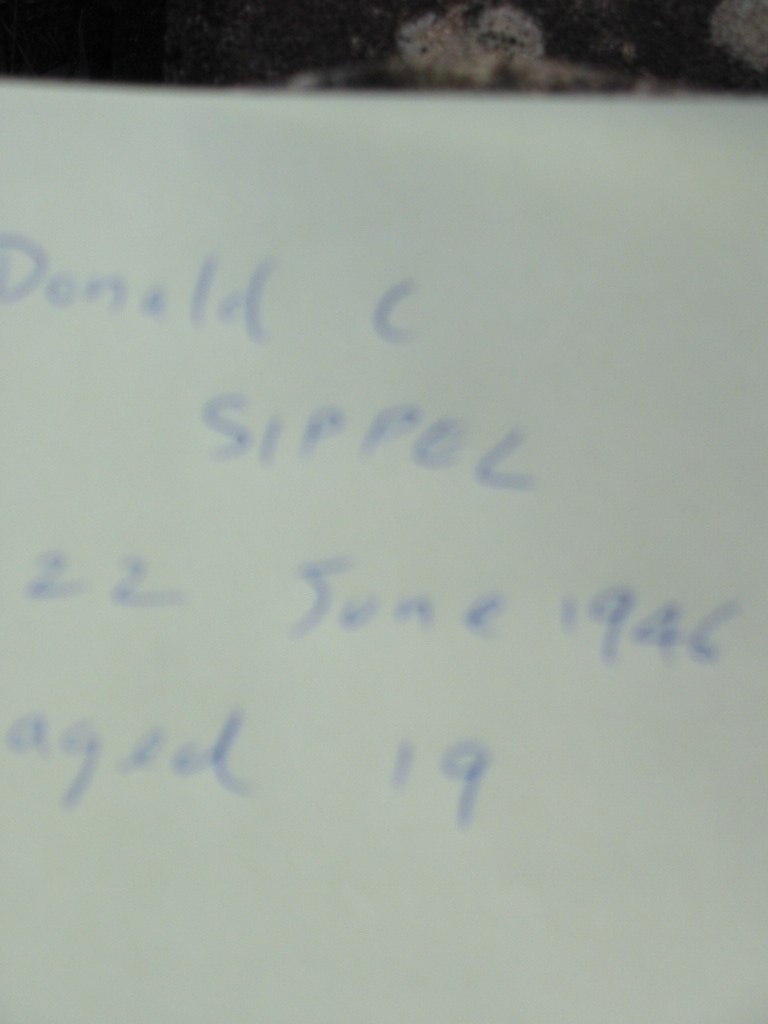 Donald C
SIPPEL
22 June 1946
aged 19